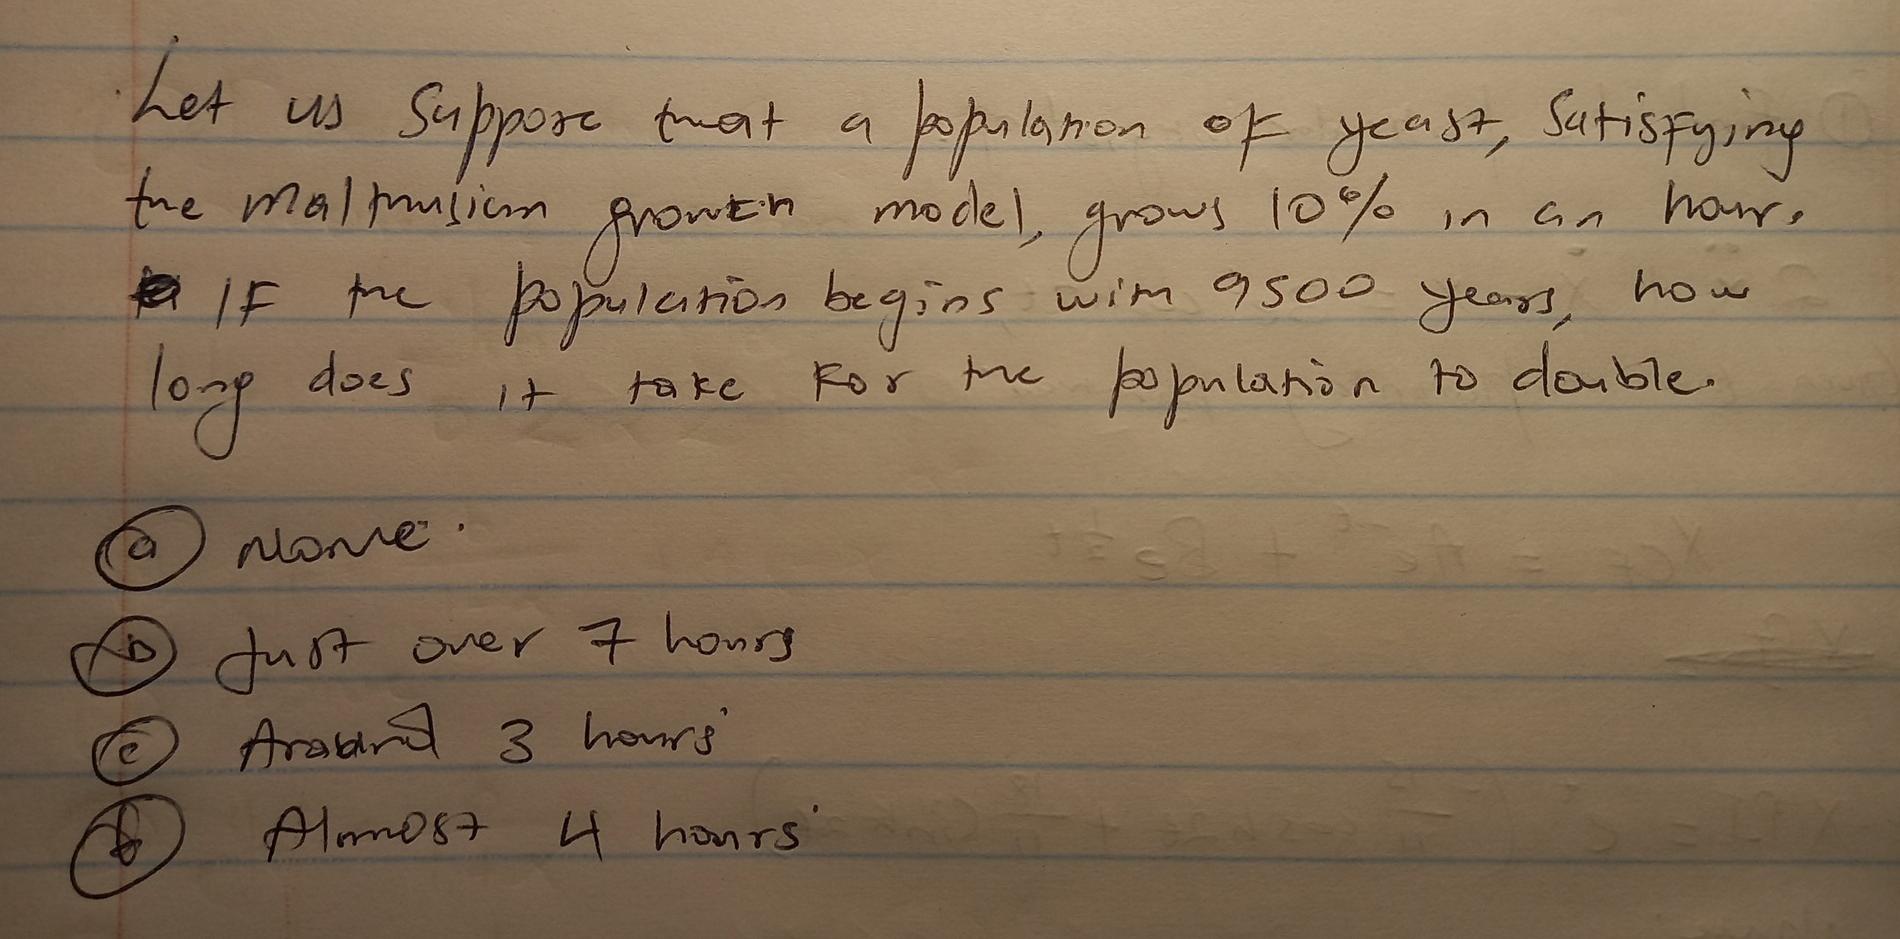 Let us Suppose that a population of yeast, Satisfying
the malthusian growth model, grows 10% in an hour.
If the population begins with 9500 years, how
long does it take For the population to double.
(a) None.
(b) Just over 7 hours
(c) Around 3 hours
Almost 4 hours